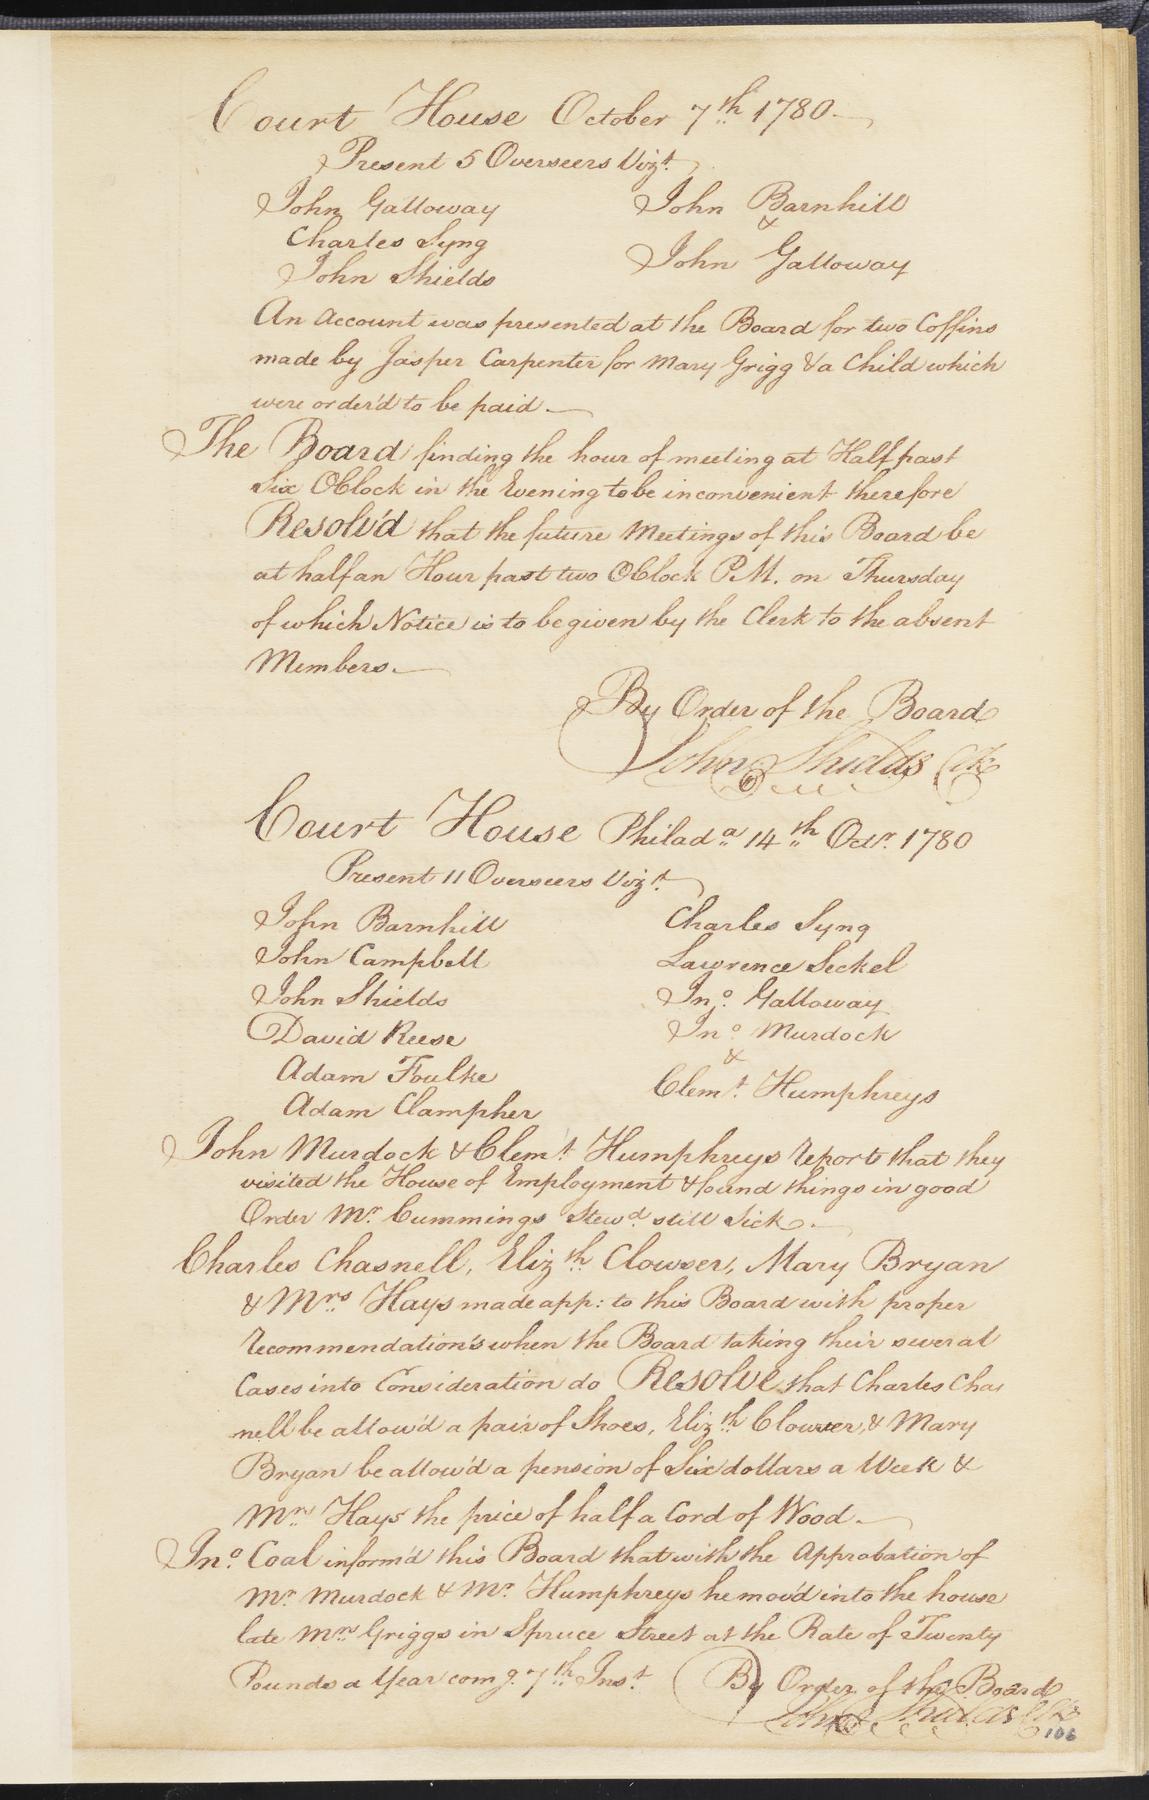 Court House October 7th 1780
Present 5 Overseers Vizt.
John Galloway
Charles Syng
John Shields
John Barnhill
&
John Galloway
An Account was presented at the Board for two Coffins
made by Jasper Carpenter for Mary Grigg & a Child which
were order'd to be paid.
The Board finding the hour of meeting at Half past
Six OClock in the Evening to be inconvenient therefore
Resolv'd that the future Meetings of this Board be
at half an Hour past two OClock P.M. on Thursday
of which Notice is to be given by the Clerk to the absent
Members.
By Order of the Board
John Shields Clk
Court House Philada 14th Octr. 1780
Present 11 Overseers Vizt.
John Barnhill
John Campbell
John Shields
David Reese
Adam Foulke
Adam Clampher
Charles Syng
Lawrence Seckel
Jno. Galloway
Jno. Murdock
&
Clemt. Humphreys
John Murdock & Clemt. Humphreys report that they
visited the House of Employment & found things in good
Order Mr. Cummings Stewd. still Sick.
Charles Chasnell, Elizth Clowser, Mary Bryan
& Mrs Hays made app: to this Board with proper
recommendations when the Board taking their several
Cases into Consideration do Resolve that Charles Chas
nell be allow'd a pair of Shoes, Elizth Clowser, & Mary
Bryan be allow'd a pension of Six dollars a Week &
Mrs. Hays the price of half a Cord of Wood.
Jno. Coal inform'd this Board that with the Approbation of
Mr. Murdock & Mr. Humphreys he mov'd into the house
late Mrs. Griggs in Spruce Street at the Rate of Twenty
Pounds a Year comg. 7th Inst.
By Order of the Board
John Shields Clk
106